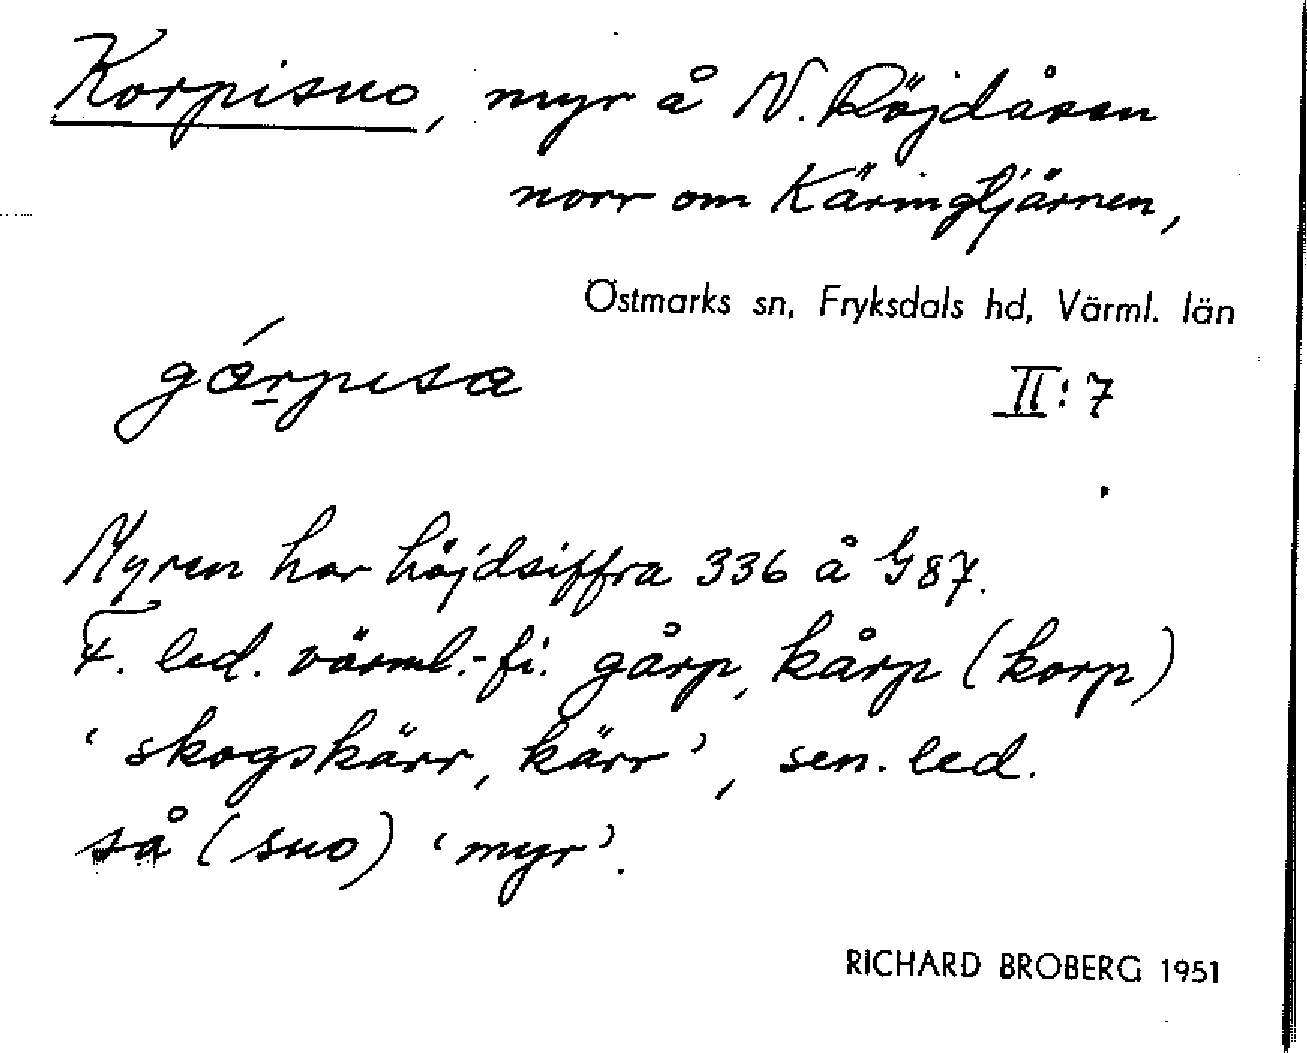 Korpisuo, myr å N. Röjdåsen
norr om Käringtjärnen,
Östmarks sn, Fryksdals hd, Värml. län
gǽrpɩsæ
II:7
Myren har höjdsiffra 336 å G87.
F. led. värml.-fi. gårp, kårp (korp)
‘skogskärr, kärr’, sen. led.
så (suo) ‘myr’.
RICHARD BROBERG 1951